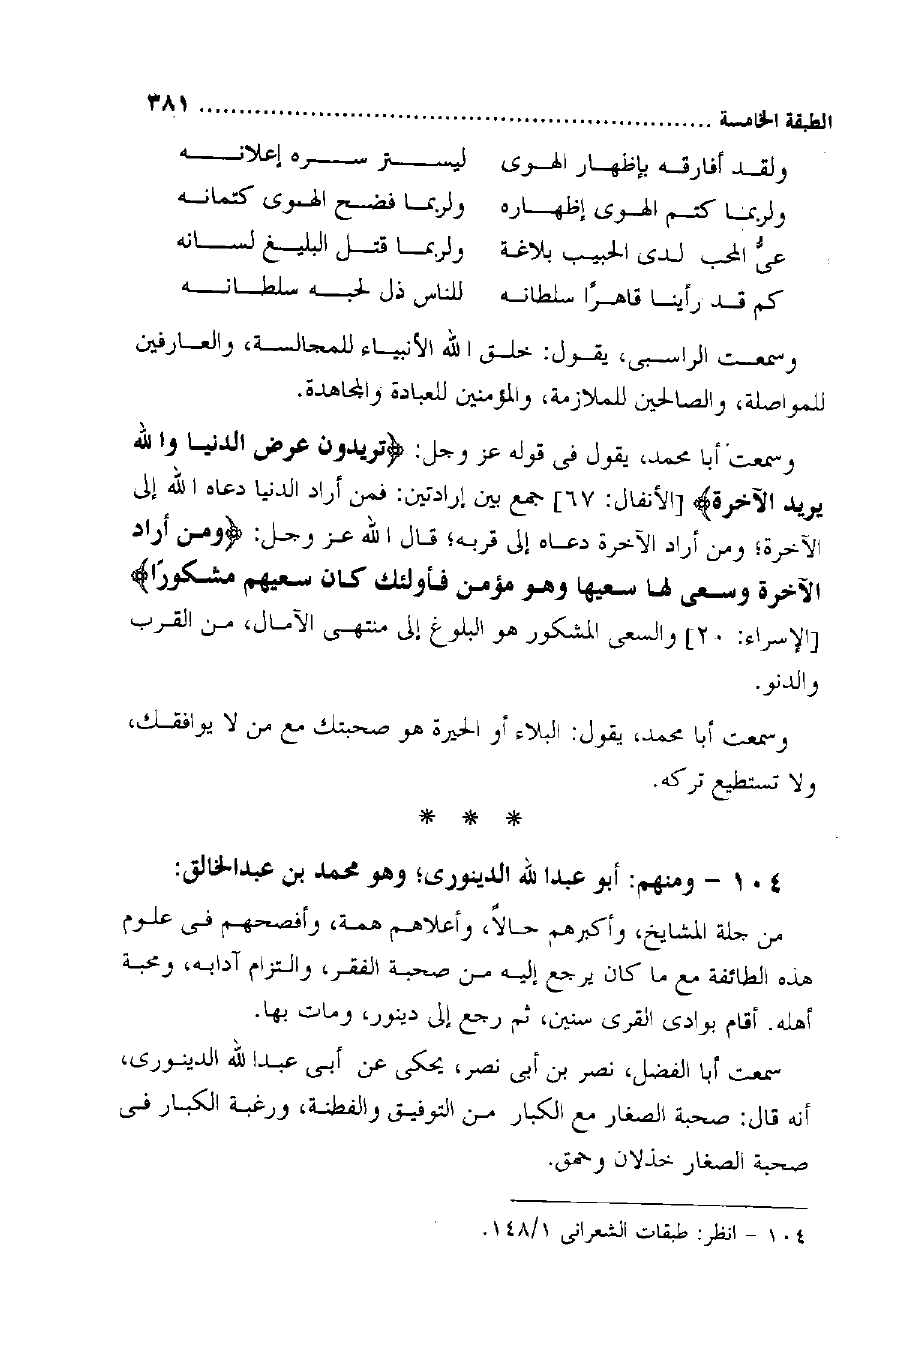 الطبقة الخامسة ................................................................ ٣٨١
ولقد أفارقه بإظهار الهوى ليستر سره إعلانه
ولربما كتم الهوى إظهاره ولربما فضح الهوى كتمانه
عىُّ المحب لدى الحبيب بلاغة ولربما قتل البليغ لسانه
كم قد رأينا قاهرًا سلطانه للناس ذل لحبه سلطانه
وسمعت الراسبى، يقول: خلق الله الأنبياء للمجالسة، والعارفين
للمواصلة، والصالحين للملازمة، والمؤمنين للعبادة والمجاهدة.
وسمعت أبا محمد، يقول فى قوله عز وجل: ﴿تريدون عرض الدنيا والله
يريد الآخرة﴾ [الأنفال: ٦٧] جمع بين إرادتين: فمن أراد الدنيا دعاه الله إلى
الآخرة؛ ومن أراد الآخرة دعاه إلى قربه؛ قال الله عز وجل: ﴿ومن أراد
الآخرة وسعى لها سعيها وهو مؤمن فأولئك كان سعيهم مشكورًا﴾
[الإسراء: ٢٠] والسعى المشكور هو البلوغ إلى منتهى الآمال، من القرب
والدنو.
وسمعت أبا محمد، يقول: البلاء أو الحيرة هو صحبتك مع من لا يوافقك،
ولا تستطيع تركه.
* * *
١٠٤ - ومنهم: أبو عبدالله الدينورى؛ وهو محمد بن عبدالخالق:
من جلة المشايخ، وأكبرهم حالاً، وأعلاهم همة، وأفصحهم فى علوم
هذه الطائفة مع ما كان يرجع إليه من صحبة الفقر، والتزام آدابه، ومحبة
أهله. أقام بوادى القرى سنين، ثم رجع إلى دينور، ومات بها.
سمعت أبا الفضل، نصر بن أبى نصر، يحكى عن أبى عبدالله الدينورى،
أنه قال: صحبة الصغار مع الكبار من التوفيق والفطنة، ورغبة الكبار فى
صحبة الصغار خذلان وحمق.
١٠٤ - انظر: طبقات الشعرانى ١٤٨/١.